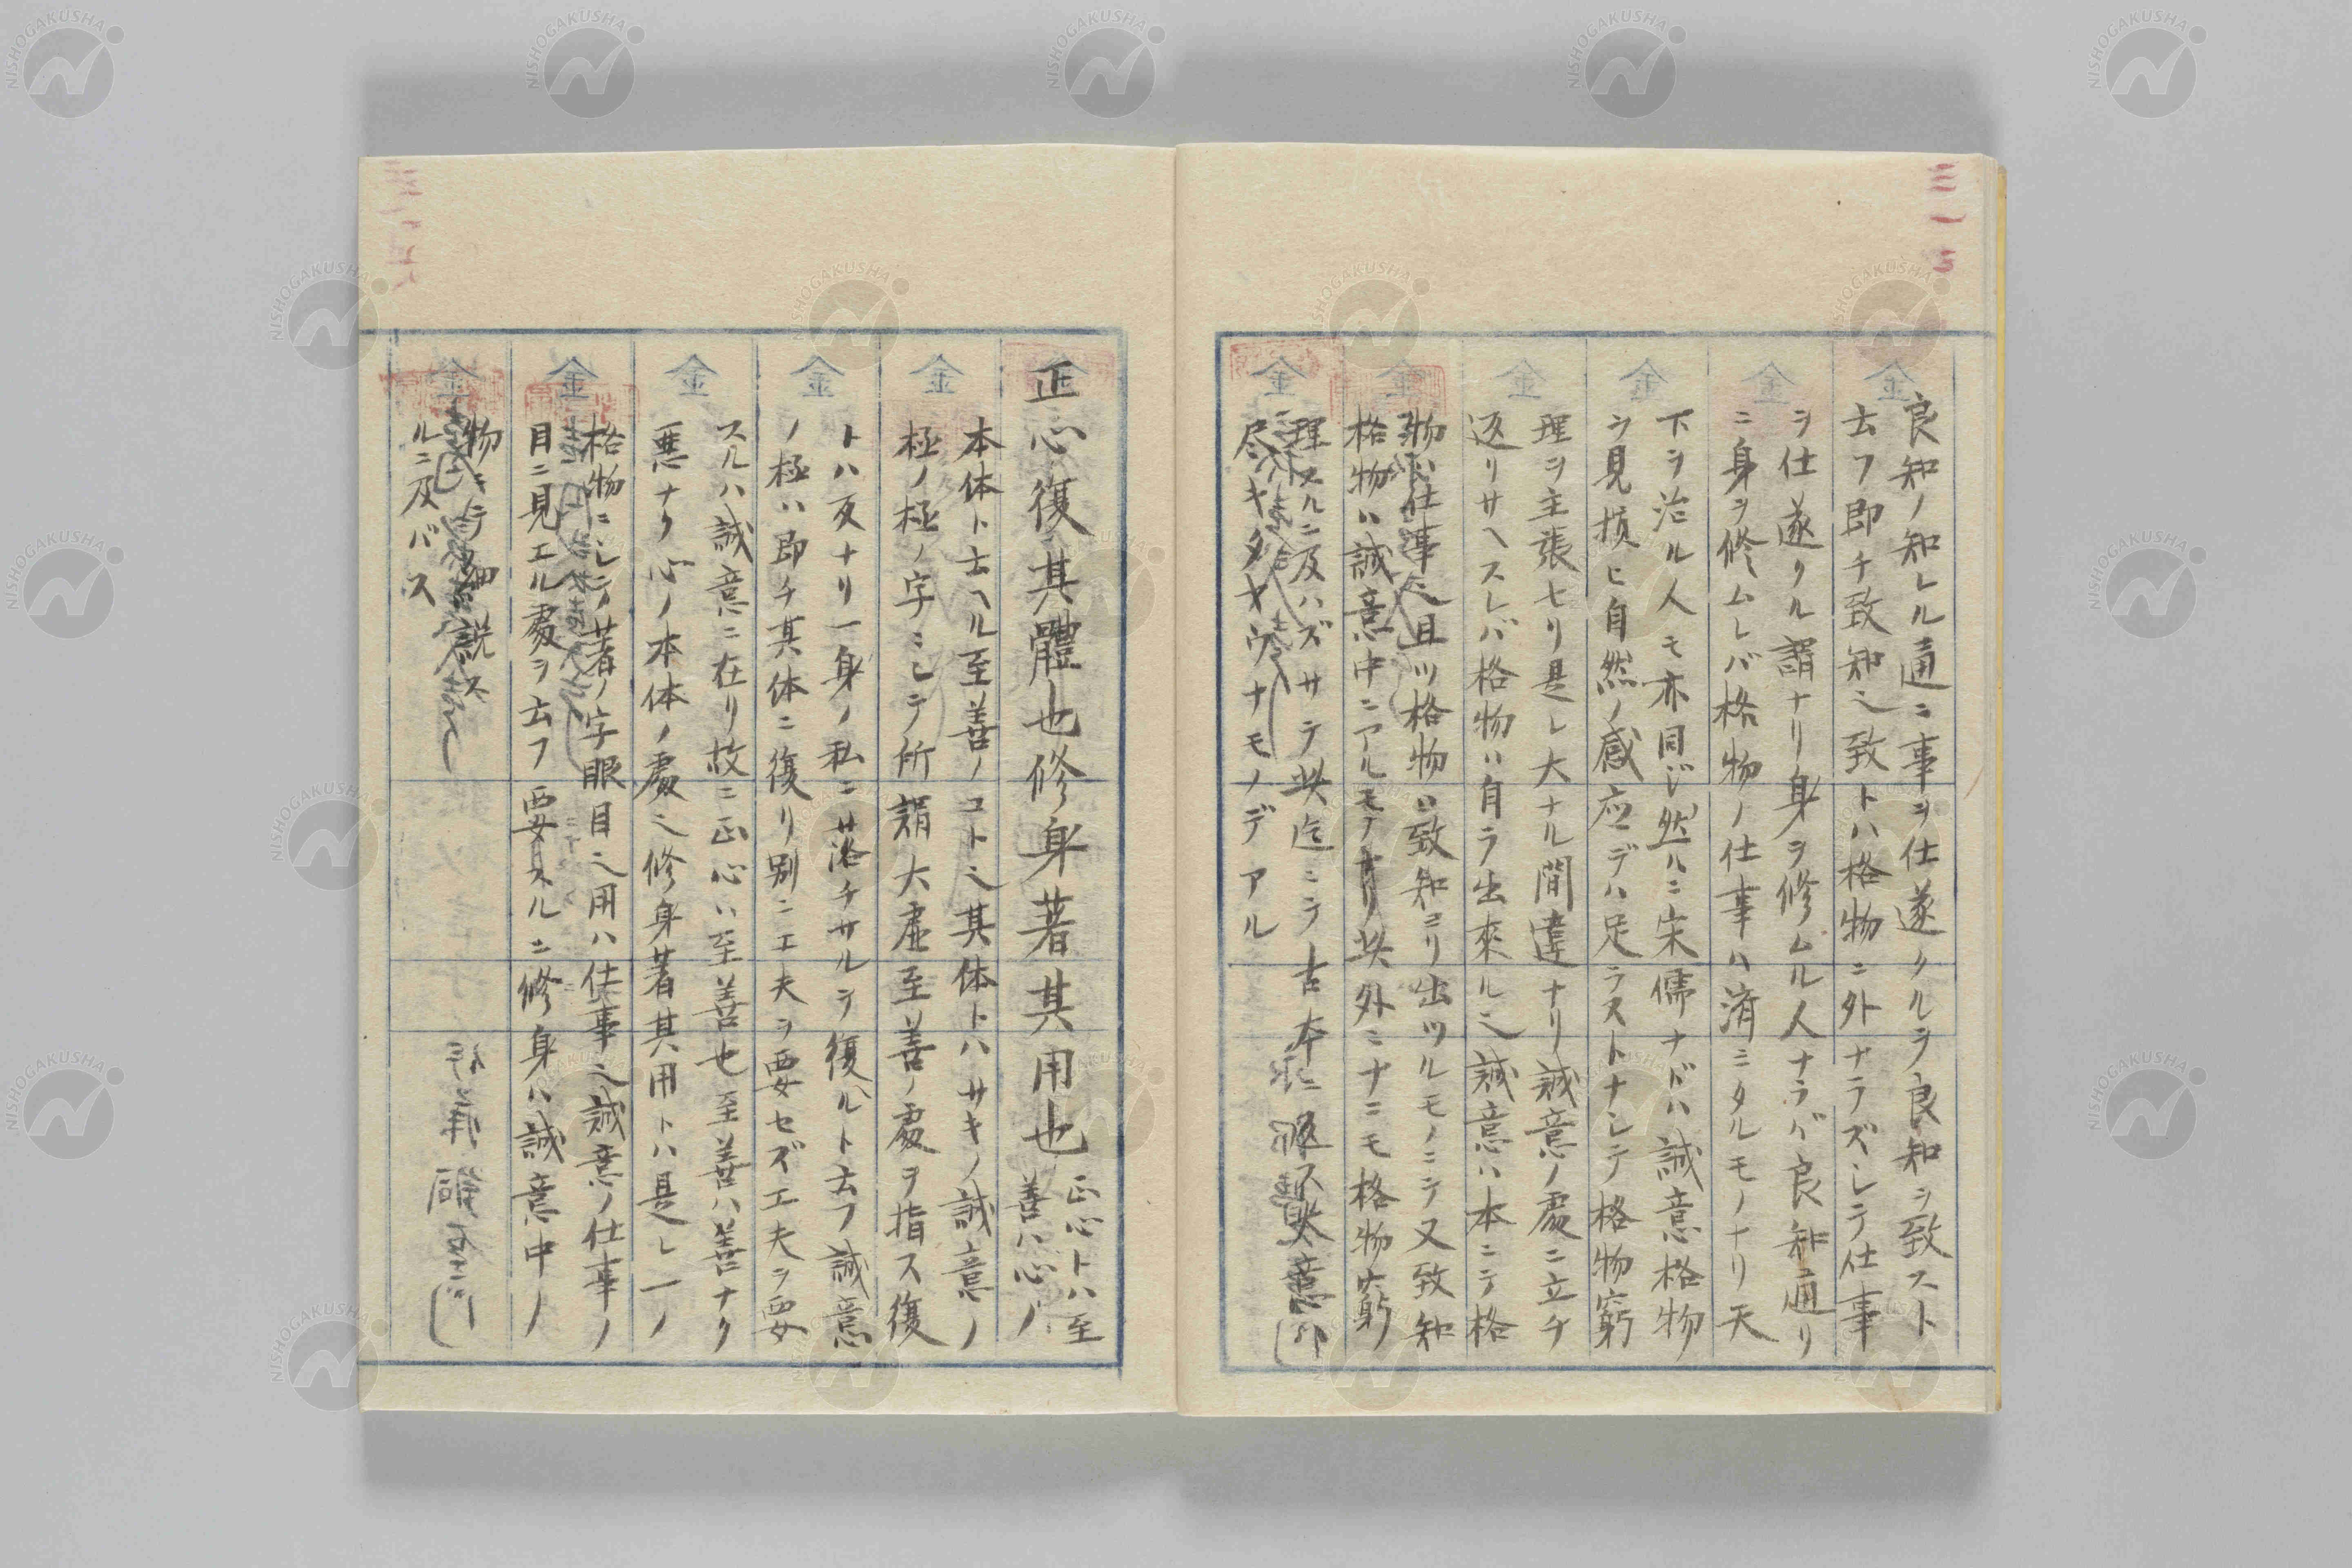 良知ノ知レル通ニ事ヲ仕遂クルヲ良知ヲ致スト
云フ即チ致知也致トハ格物ニ外ナラズシテ仕事
ヲ仕遂クル謂ナリ身ヲ修ムル人ナラバ良知通リ
ニ身ヲ修ムレバ格物ノ仕事ハ済ミタルモノナリ天
下ヲ治ル人モ亦同ジ然ルニ宋儒ナドハ誠意格物
ヲ見損ヒ自然ノ感应デハ足ラストナシテ格物窮
理ヲ主張セリ是レ大ナル間違ナリ誠意ノ處ニ立チ
返リサヘスレバ格物ハ自ラ出來ル也誠意ハ本ニテ格
物ハ仕事也且ツ格物ハ致知ヨリ出ツルモノニテ又致知
格物ハ誠意中ニアルモノナリ此外ニナニモ格物窮
理スルニ及ハズサテ此迄ニテ古本ニ
尽キタヤウナモノデアル
正心復其體也修身著其用也
正心トハ至
善ハ心ノ
本体ト云ヘル至善ノコト也其体トハサキノ誠意ノ
極ノ極ノ字ニシテ所謂大虚至善ノ處ヲ指ス復
トハ反ナリ一身ノ私ニ落チサルヲ復ルト云フ誠意
ノ極ハ即チ其体ニ復リ別ニ工夫ヲ要セズ工夫ヲ要
スルハ誠意ニ在リ故ニ正心ハ至善也至善ハ善ナク
悪ナク心ノ本体ノ處也修身著其用トハ是レ一ノ
格物ニシテ著ノ字眼目也用ハ仕事也誠意ノ仕事ノ
目ニ見エル處ヲ云フ要スルニ修身ハ誠意中ノ
物ニテ細説ス
ルニ及バス
三一三
金
NISHOGAKUSHA